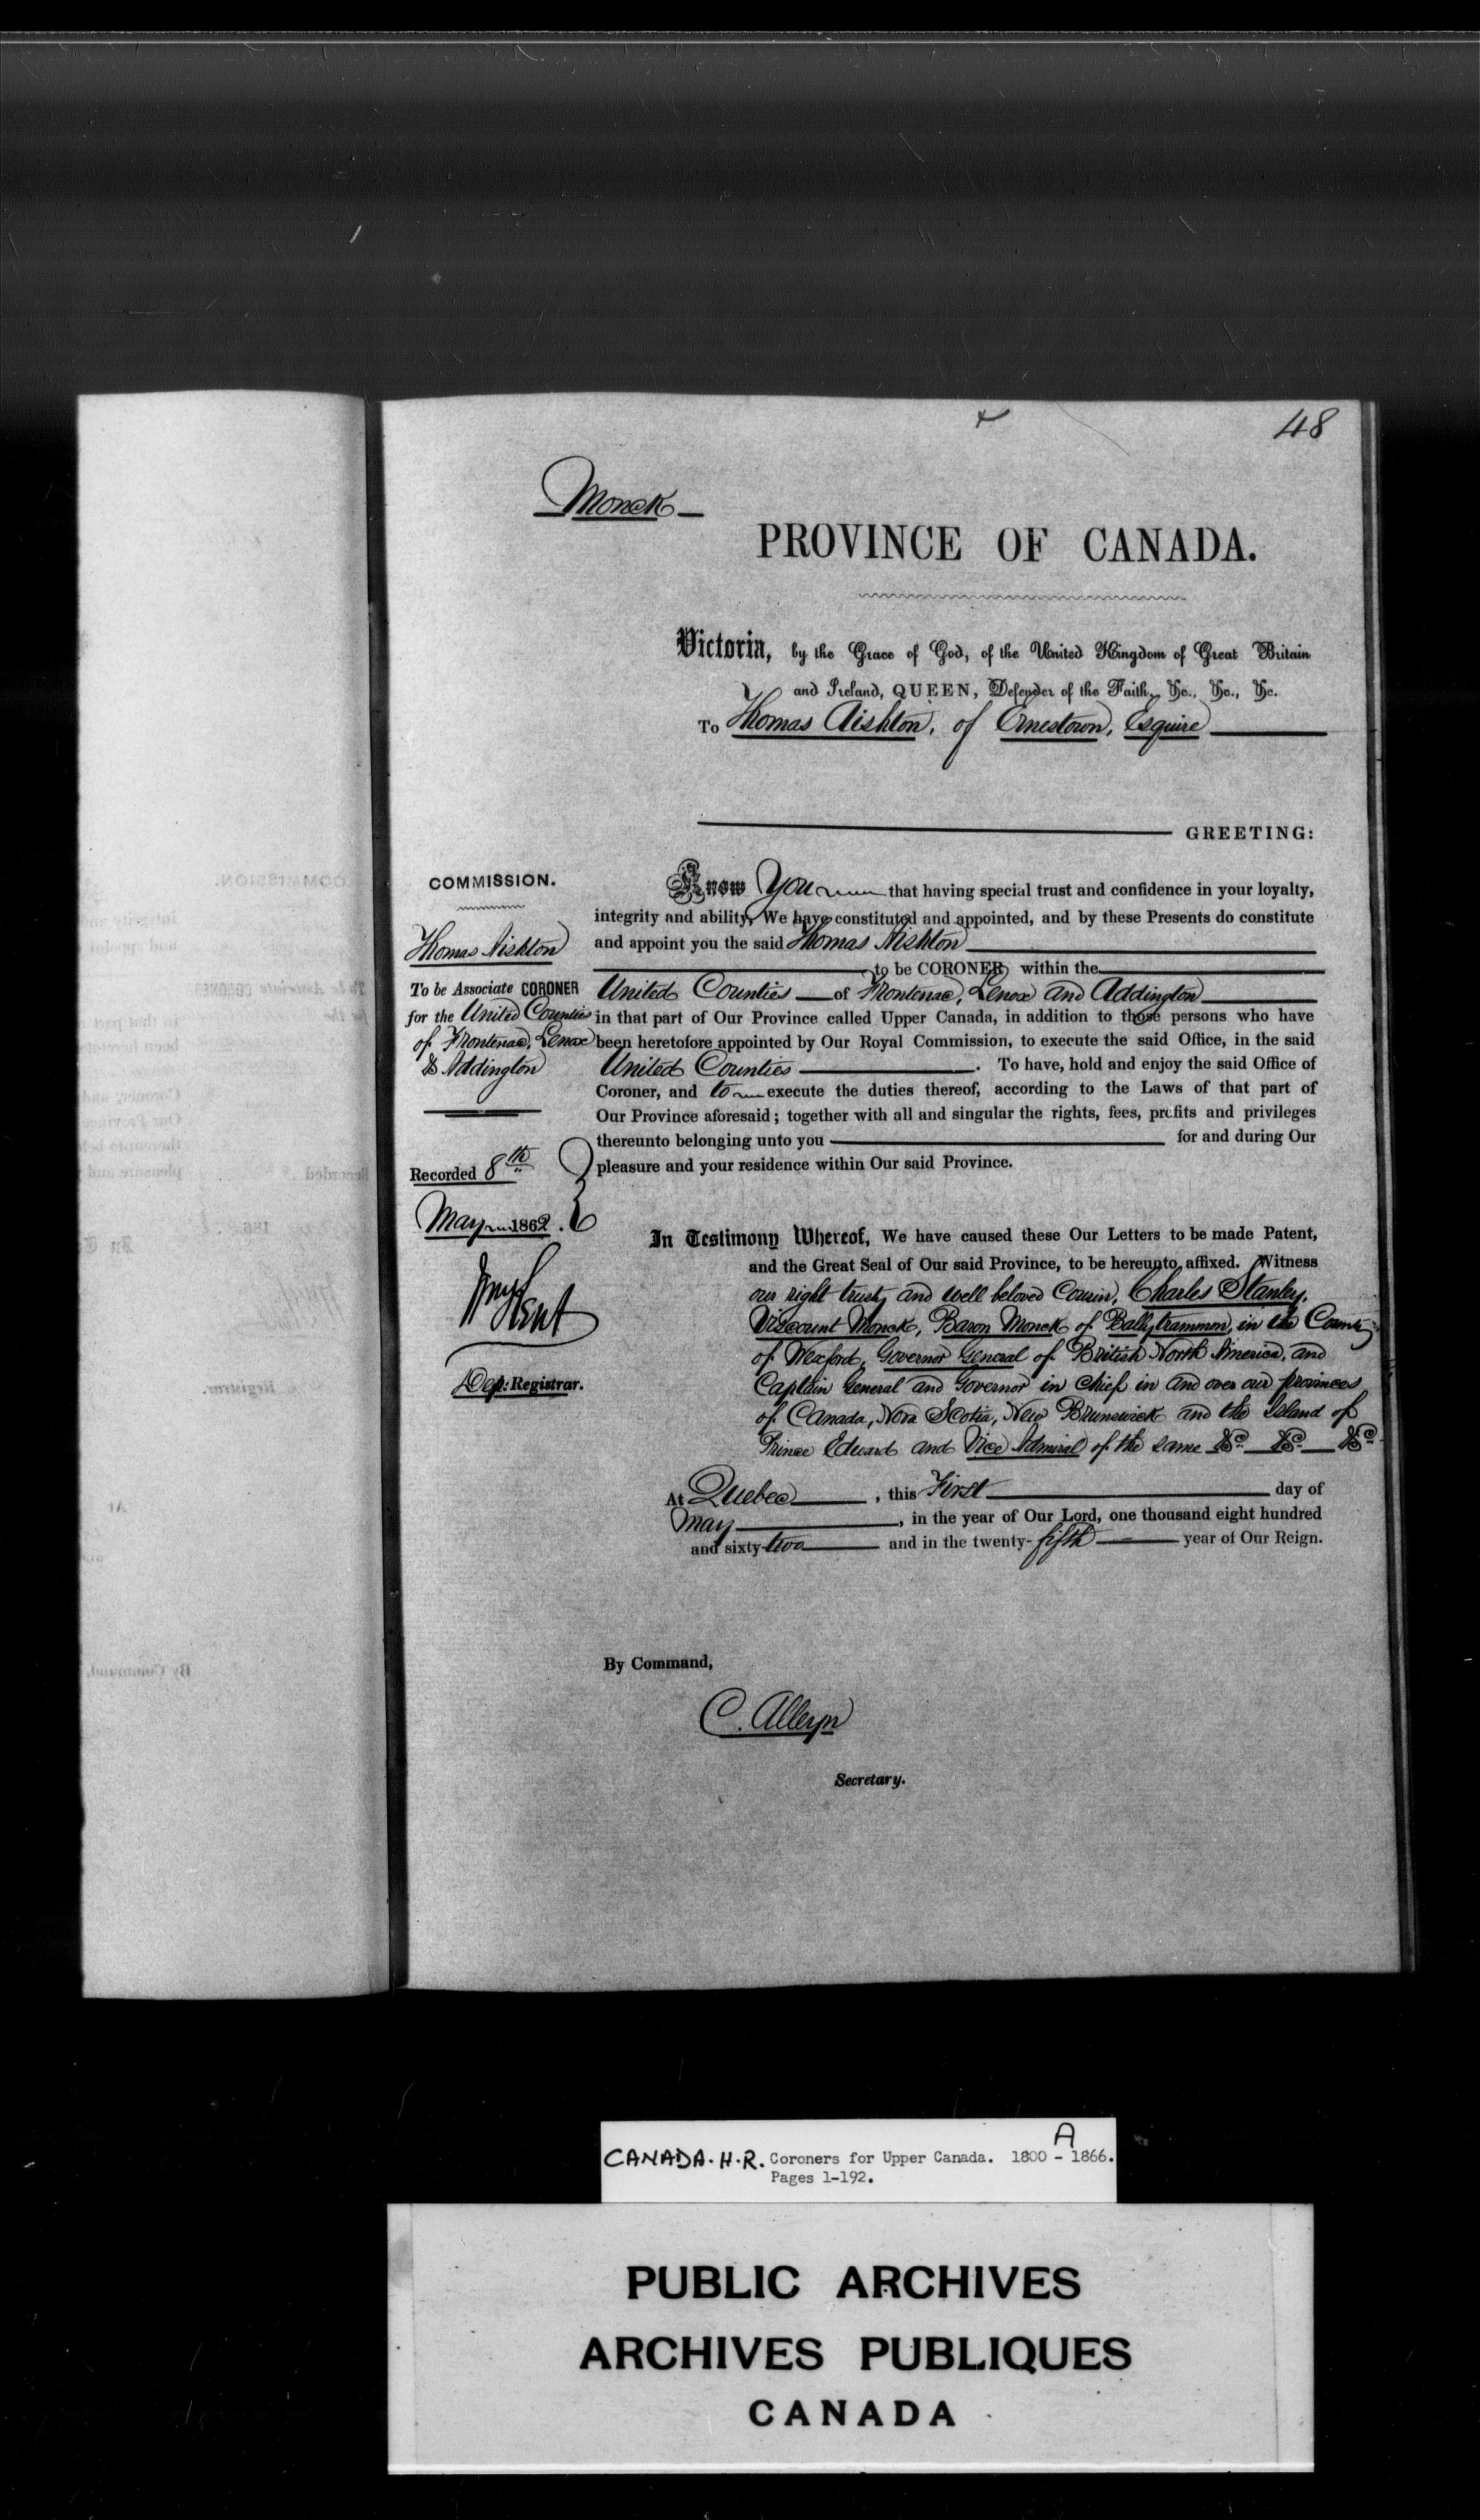 48
Monck
PROVINCE OF CANADA.
Victoria, by the Grace of God, of the United Kingdom of Great Britain
and Ireland, QUEEN, Defender of the Faith, &c., &c., &c.
To Thomas Aishton, of Ernestown, Esquire
GREETING:
COMMISSION.
Thomas Aishton
To be Associate CORONER
for the United Counties
of Frontenac, Lenox
& Addington
Recorded 8th
May 1862.
Wm Kent
Dep: Registrar.
Know You that having special trust and confidence in your loyalty,
integrity and ability, We have constituted and appointed, and by these Presents do constitute
and appoint you the said Thomas Aishton
to be CORONER within the
United Counties of Frontenac, Lenox and Addington
in that part of Our Province called Upper Canada, in addition to those persons who have
been heretofore appointed by Our Royal Commission, to execute the said Office, in the said
United Counties. To have, hold and enjoy the said Office of
Coroner, and to execute the duties thereof, according to the Laws of that part of
Our Province aforesaid; together with all and singular the rights, fees, profits and privileges
thereunto belonging unto you for and during Our
pleasure and your residence within Our said Province.
In Testimony Whereof, We have caused these Our Letters to be made Patent,
and the Great Seal of Our said Province, to be hereunto affixed. Witness
our right trusty and well beloved Cousin, Charles Stanley,
Viscount Monck, Baron Monck of Ballytrammon, in the County
of Wexford, Governor General of British North America, and
Captain General and Governor in Chief in and over our provinces
of Canada, Nova Scotia, New Brunswick and the Island of
Prince Edward and Vice Admiral of the same &c. &c. &c.
At Quebec, this First day of
May, in the year of Our Lord, one thousand eight hundred
and sixty-two and in the twenty-fifth year of Our Reign.
By Command,
C. Alleyn
Secretary.
A
CANADA. H. R. Coroners for Upper Canada. 1800 - 1866.
Pages 1-192.
PUBLIC ARCHIVES
ARCHIVES PUBLIQUES
CANADA